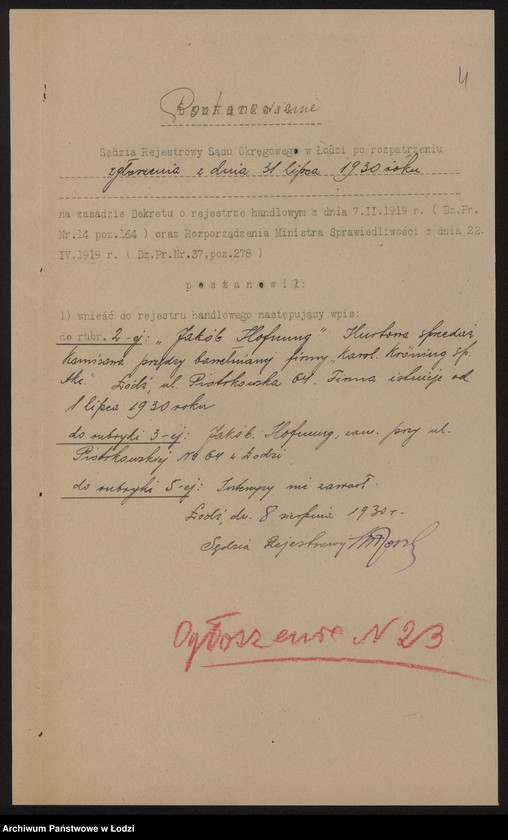 4
Postanowienie
Sędzia Rejestrowy Sądu Okręgowego w Łodzi po rozpatrzeniu
zgłoszenia z dnia 31 lipca 1930 roku
na zasadzie Dekretu o rejestrze handlowym z dnia 7.II.1919 r. ( Dz.Pr.
Nr.14 poz.164 ) oraz Rozporządzenia Ministra Sprawiedliwości z dnia 22.
IV.1919 r. ( Dz.Pr.Nr.37,poz.278 )
postanowił:
1) wnieść do rejestru handlowego następujący wpis:
do rubr. 2-ej: „Jakób Hofnung" Hurtowa sprzedaż
komisowa przędzy bawełnianej firmy „Karol Kröning Sp.
Akc." Łódź, ul. Piotrkowska 64. Firma istnieje od
1 lipca 1930 roku
do rubryki 3-ej: Jakób Hofnung, zam. przy ul.
Piotrkowskiej No 64 w Łodzi
do rubryki 5-ej: Intercyzy nie zawarł.
Łódź, dn. 8 sierpnia 1930 r.
Sędzia Rejestrowy
Ogłoszenie N 23
Archiwum Państwowe w Łodzi